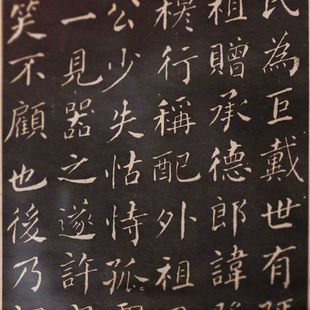 為巨戴世有
祖贈承德郎諱
行稱配外祖
公少失怙恃孤
一見器之遂許
笑不顧也後乃